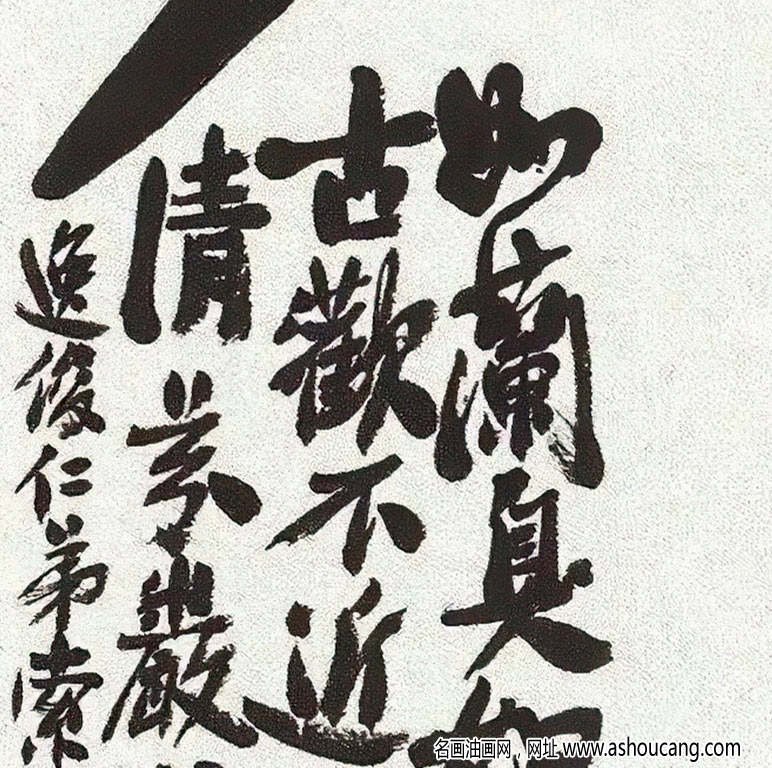 如蘭臭
古歡不近
清芬嚴
逸俊仁弟索
名画油画网，网址 www.ashoucang.com